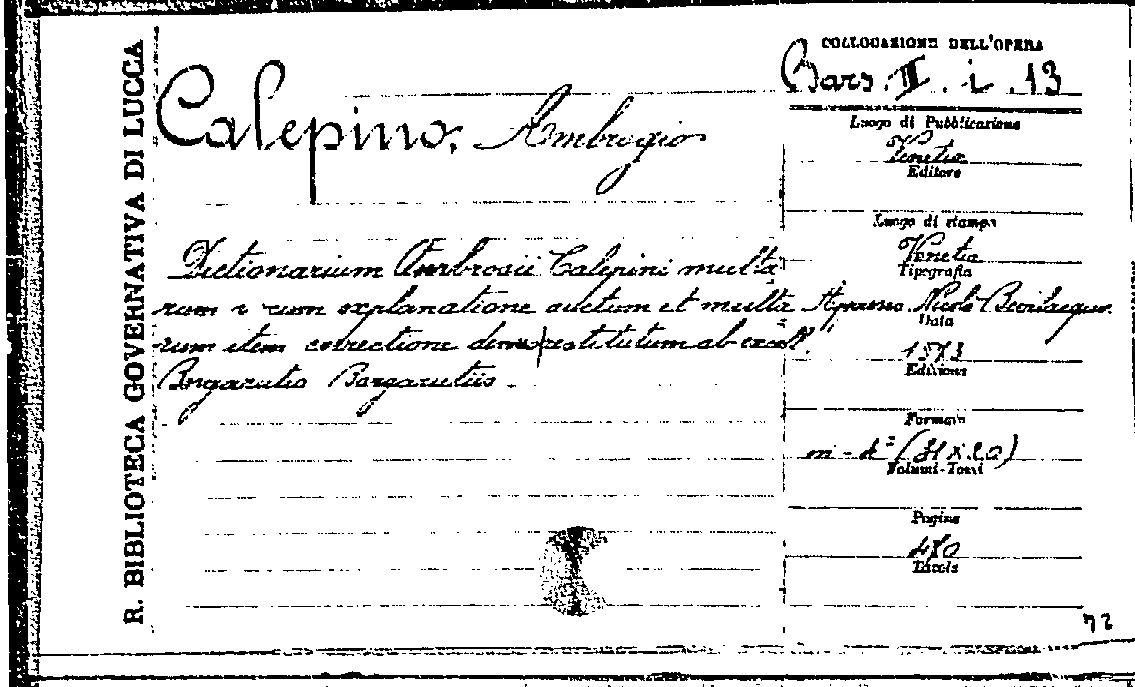 R. BIBLIOTECA GOVERNATIVA DI LUCCA
Calepino, Ambrogio
Dictionarium Ambrosii Calepini multa
rum rerum explanatione auctum et multa
rum item correctione denuo restitutum ab excell.
Bargarutio Bargarutiis.
COLLOCAZIONE DELL'OPERA
Bars. II. i. 13
Luogo di Pubblicazione
Venetia
Editore
Luogo di stampa
Venetia
Tipografia
Apresso Nicolò Bevilacqua
Data
1573
Edizione
Formato
in-4° (31 x 20)
Volumi-Tomi
Pagine
480
Tavole
72